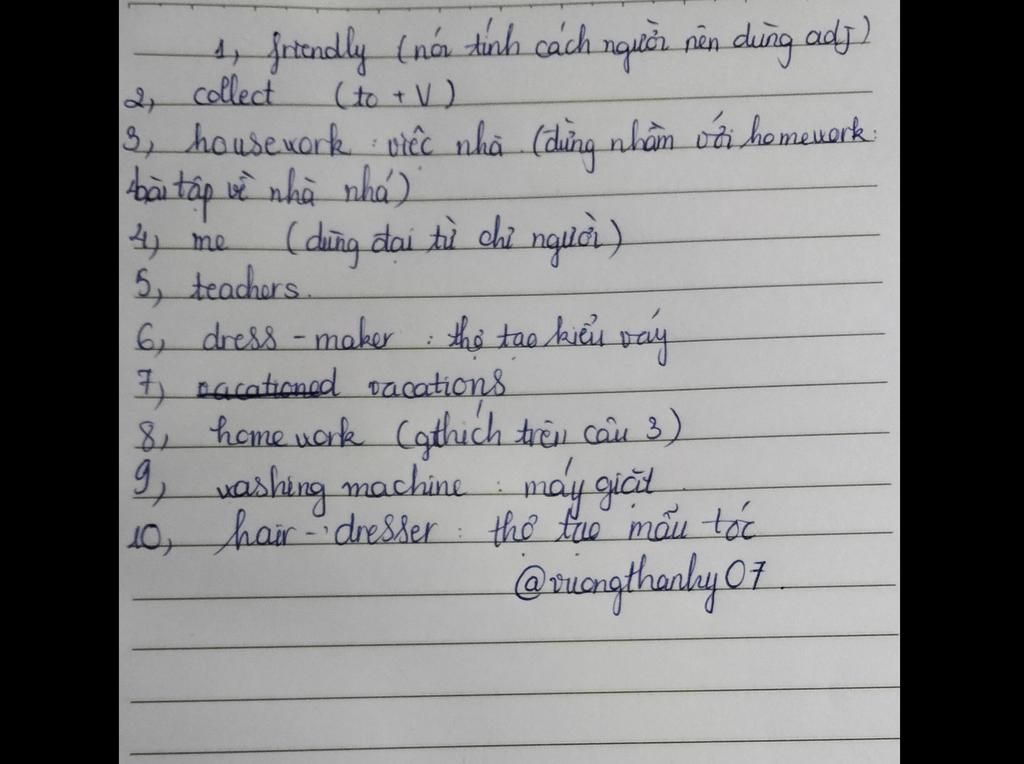 1, friendly (nói tính cách người nên dùng adj)
2, collect (to + V)
3, housework : việc nhà (đừng nhầm với homework:
bài tập về nhà nhá)
4, me (dùng đại từ chỉ người)
5, teachers.
6, dress - maker : thợ tạo kiểu váy
7, vacationed vacations
8, homework (gthích trên câu 3)
9, washing machine : máy giặt
10, hair - dresser : thợ tạo mẫu tóc
@vuongthanhy07.